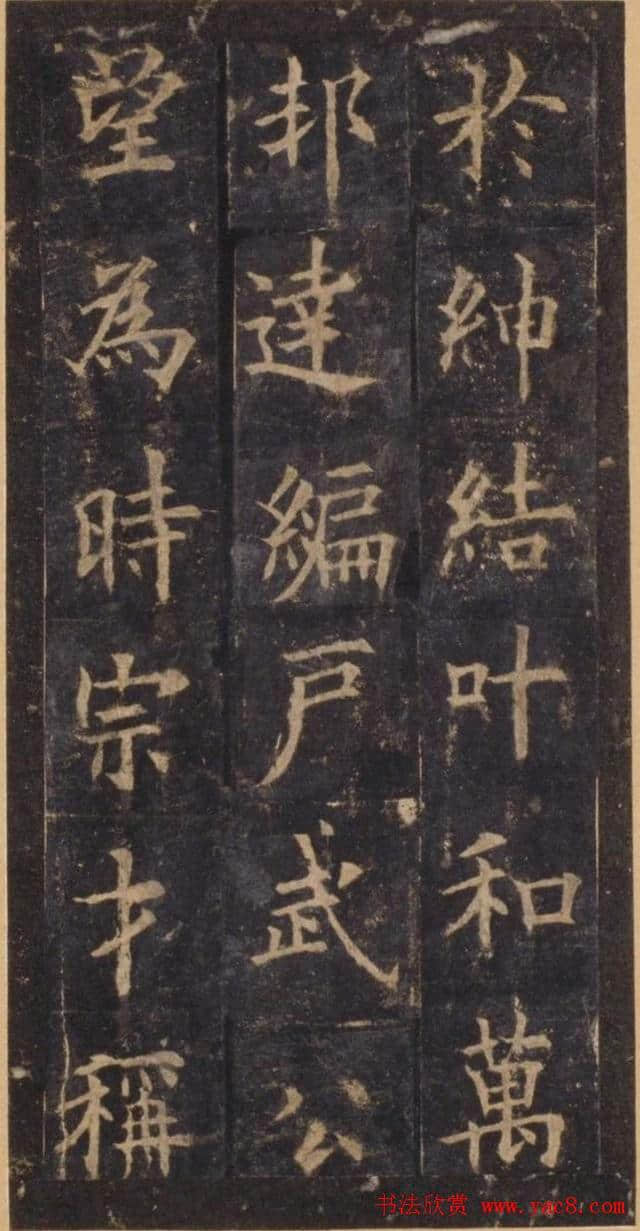 於紳結叶和萬
邦達編戸武公
望為時宗才稱
书法欣赏 www.yac8.com